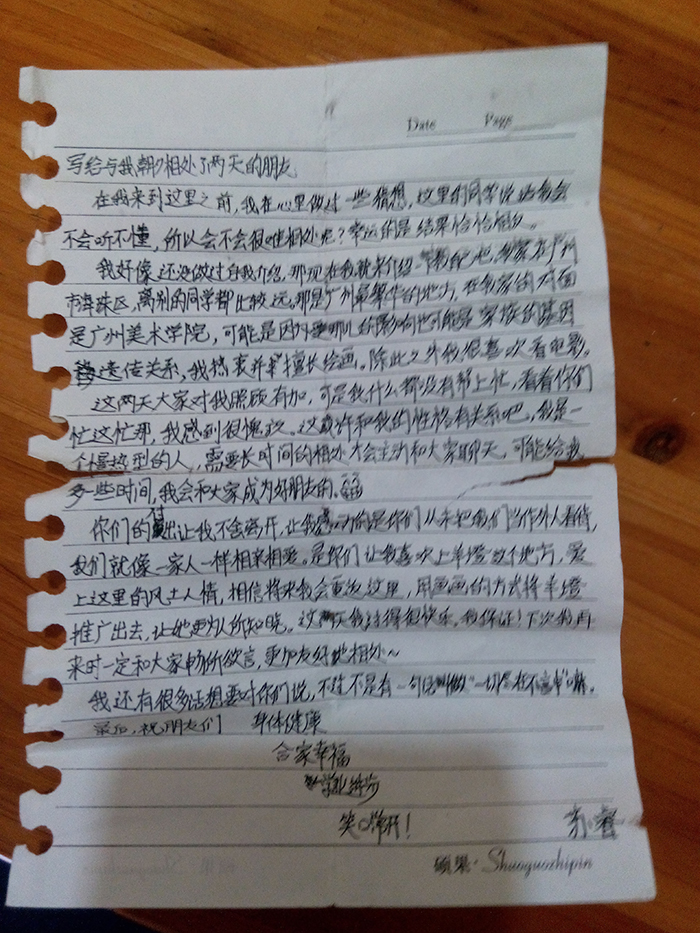 Date Page
写给与我朝夕相处了两天的朋友
在我来到这里之前，我在心里做过一些猜想，这里的同学说话我会
不会听不懂，所以会不会很难相处呢？幸运的是结果恰恰相反。
我好像还没做过自我介绍，那现在我就来介绍一下我自己吧，我家在广州
市海珠区，离别的同学都比较远。那是广州最繁华的地方，在我家的对面
是广州美术学院，可能是因为受哪儿的影响也可能是家族的基因
遗传关系，我热衷并擅长绘画。除此之外我很喜欢看电影。
这两天大家对我照顾有加，可是我什么都没有帮上忙，看着你们
忙这忙那，我感到很愧疚。这或许和我的性格有关系吧，我是一
个慢热型的人，需要长时间的相处才会主动和大家聊天，可能给我
多一些时间，我会和大家成为好朋友的。
你们的付出让我不舍离开，让我感动的是你们从未把我们当作外人看待，
我们就像一家人一样相亲相爱。是你们让我喜欢上羊塔这个地方，爱
上这里的风土人情，相信将来我会重返这里，用画画的方式将羊塔
推广出去，让她更为人所知晓。这两天我过得很快乐。我保证！下次我再
来时一定和大家畅所欲言，更加友好地相处～
我还有很多话想要对你们说，不过不是有一句话叫做“一切尽在不言中”嘛。
最后，祝朋友们 身体健康
合家幸福
学业进步
笑口常开！
硕果· Shuoguozhipin